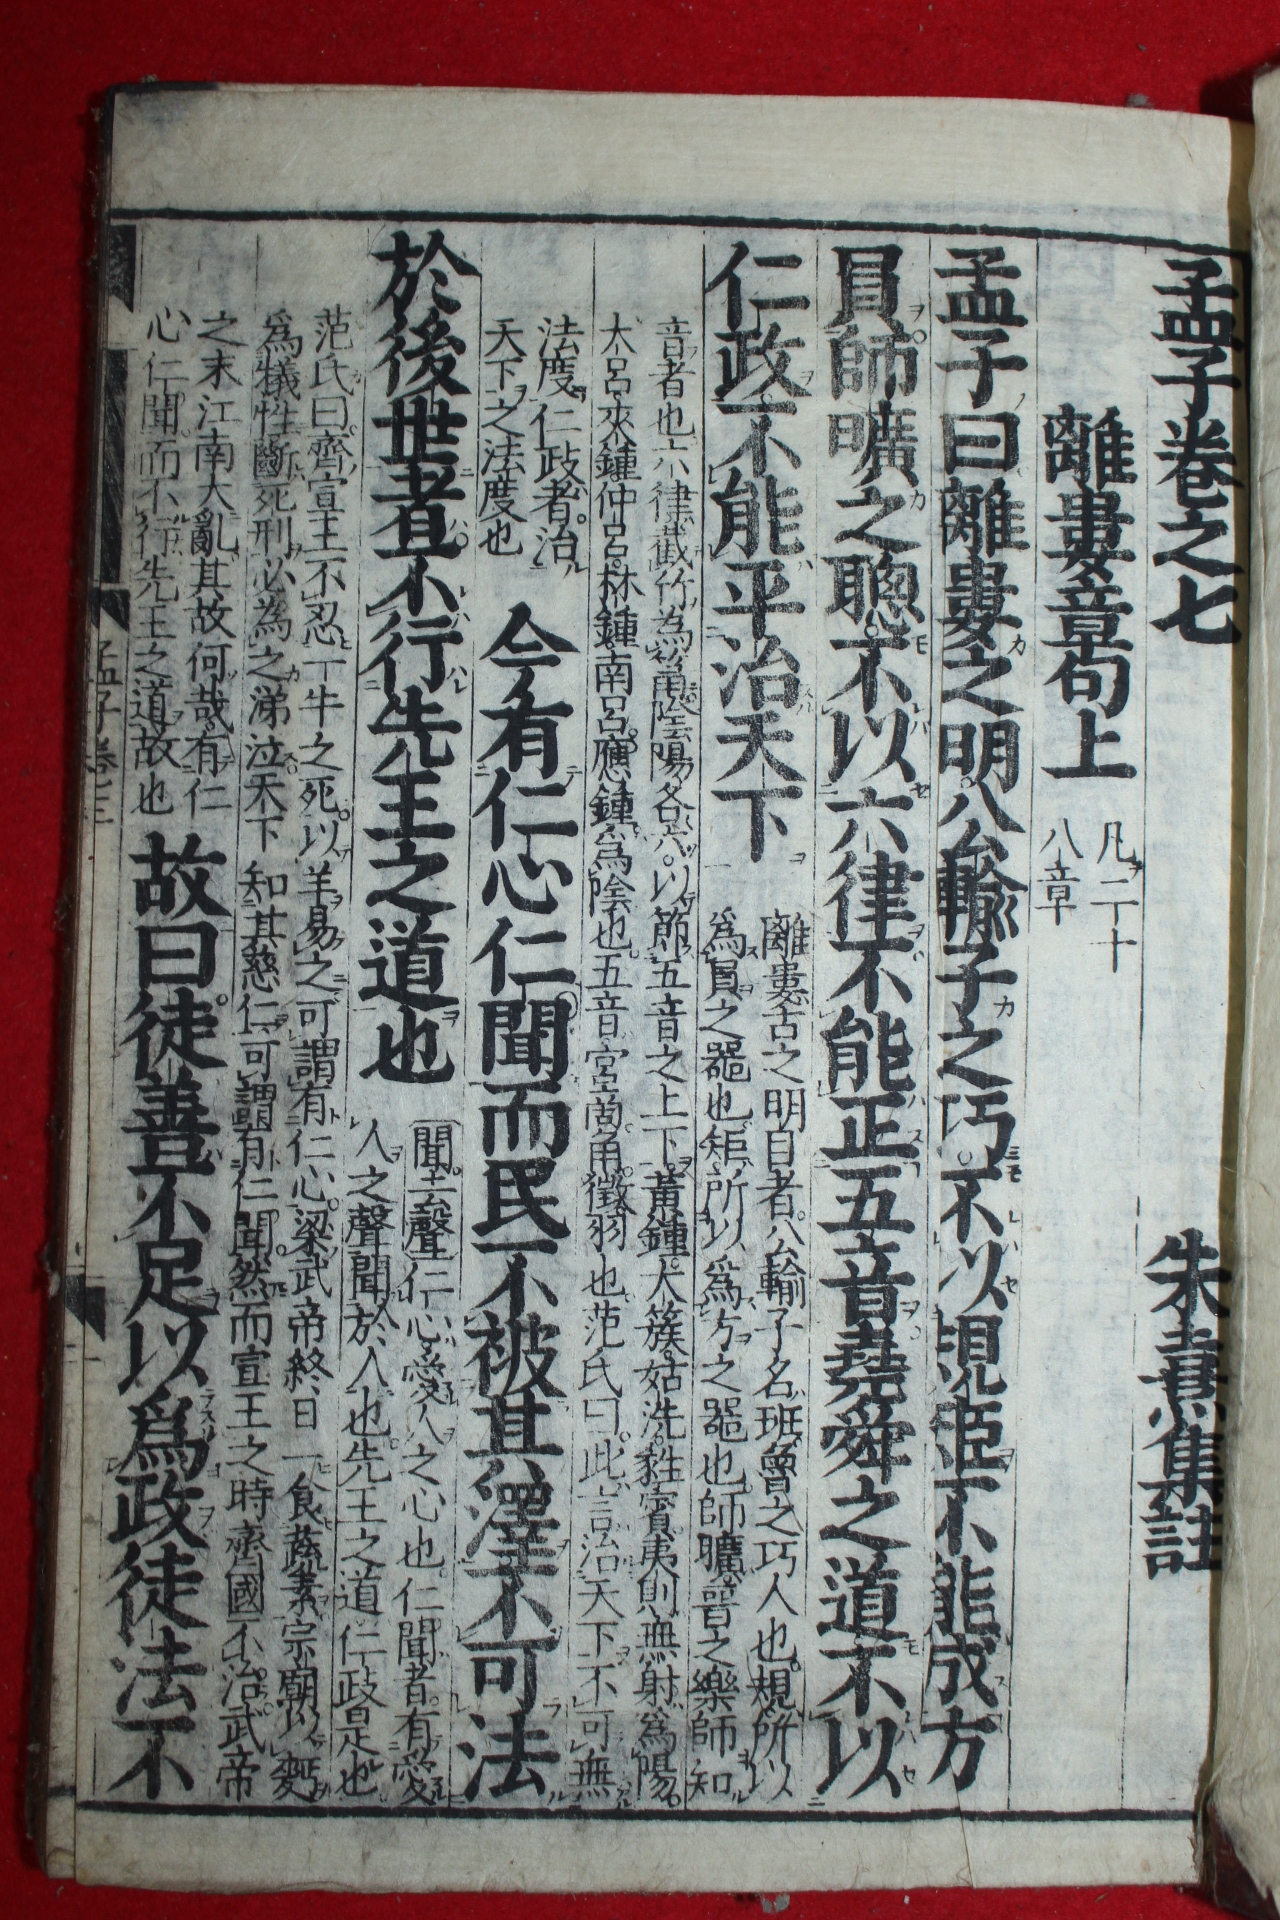 孟子卷之七
朱熹集註
離婁章句上
凡二十
八章
孟子曰離婁之明公輸子之巧不以規矩不能成方
員師曠之聰不以六律不能正五音堯舜之道不以
仁政不能平治天下
離婁古之明目者公輸子名班魯之巧人也規所以
爲員之器也矩所以爲方之器也師曠晉之樂師知
音者也六律截竹爲筩陰陽各六以節五音之上下黃鍾大簇姑洗蕤賓夷則無射爲陽
大呂夾鍾仲呂林鍾南呂應鍾爲陰也五音宮商角徵羽也范氏曰此言治天下不可無
法度仁政者治
天下之法度也
今有仁心仁聞而民不被其澤不可法
於後世者不行先王之道也
聞去聲仁心愛人之心也仁聞者有愛
人之聲聞於人也先王之道仁政是也
范氏曰齊宣王不忍一牛之死以羊易之可謂有仁心梁武帝終日一食蔬素宗廟以麪
爲犧牲斷死刑必爲之涕泣天下知其慈仁可謂有仁聞然而宣王之時齊國不治武帝
之末江南大亂其故何哉有仁
心仁聞而不行先王之道故也
故曰徒善不足以爲政徒法不
孟子卷七